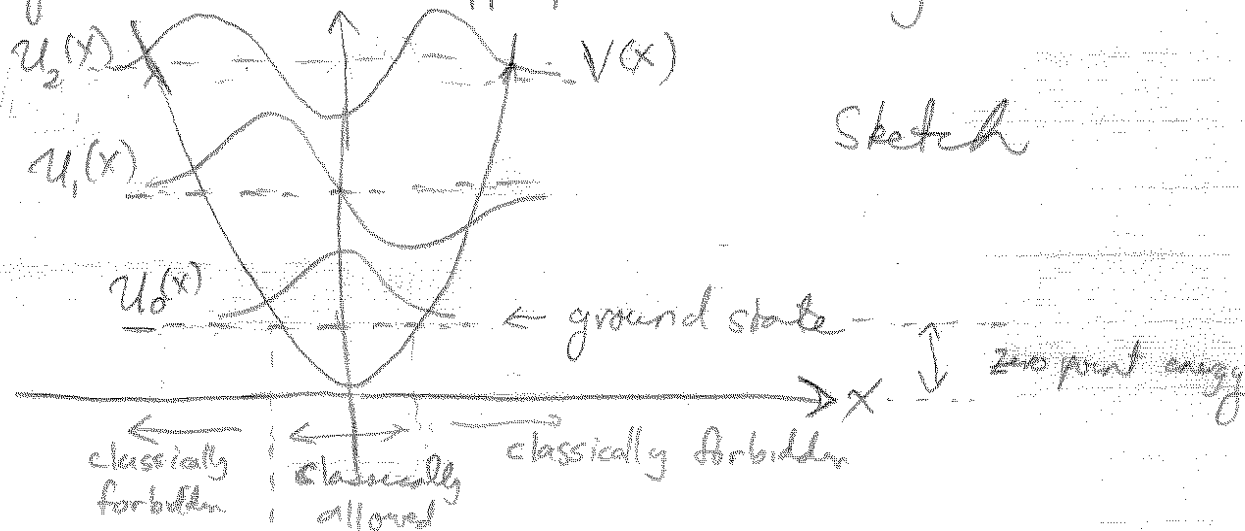 u₂(x)
V(x)
Sketch
u₁(x)
u₀(x)
← ground state
zero point energy
x
classically
forbidden
classically
allowed
classically forbidden